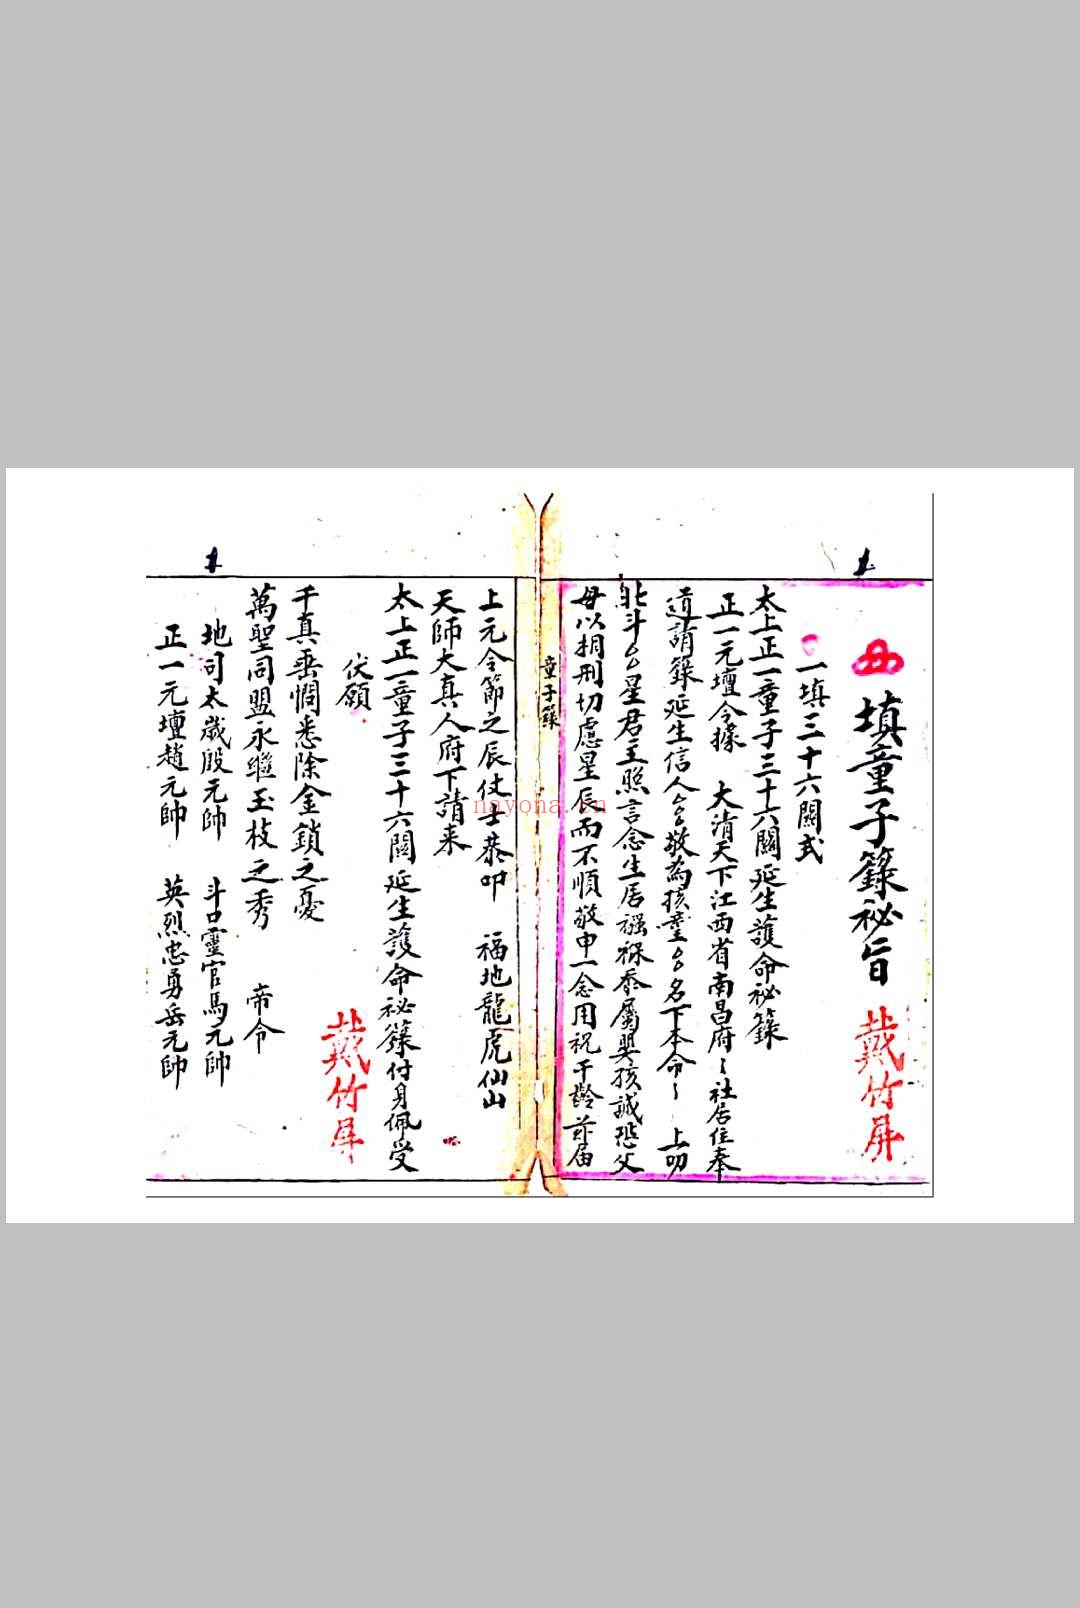 填童子籙祕旨 戴竹屏
一填三十六關式
太上正一童子三十六關延生護命祕籙
正一元壇今據 大清天下江西省南昌府〻社居住奉
道請籙延生信人厶厶敬為孩童厶厶名下本命〻 上叩
北斗厶厶星君主照言念生居襁褓忝屬嬰孩誠恐父
母以捐刑切慮星辰而不順敬申一念用祝千齡茲届
童子籙
上元令節之辰仗士恭叩 福地龍虎仙山
天師大真人府下請来
太上正一童子三十六關延生護命祕籙付身佩受
伏願 戴竹屏
千真垂憫悉除金鎖之憂
萬聖同盟永繼玉枝之秀 帝令
地司太歲殷元帥 斗口靈官馬元帥
正一元壇趙元帥 英烈忠勇岳元帥
nayona.cn